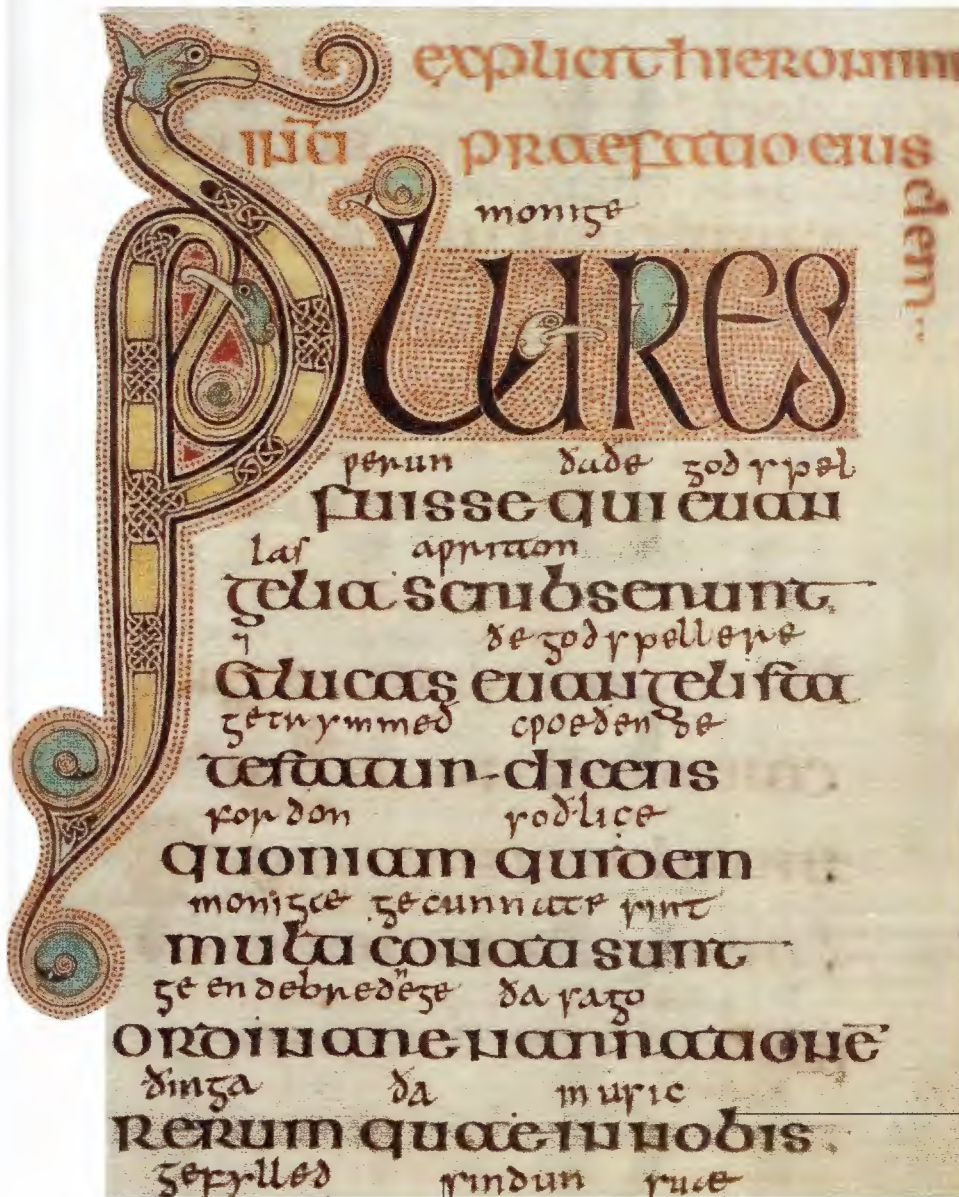 explicit hieronimi
praefatio eius
dem
monige
PLURES
ƿerun ðaðe godspel
fuisse qui euan
las aƿritton
gelia scribserunt
⁊ ðe godspellere
et lucas euangelista
getrymmed cƿoeðende
testatur dicens
forðon soðlice
quoniam quidem
monigæ gecunnate sint
multi conati sunt
ge endebredenge ða sago
ordinare narrationē
ðinga ða in usic
rerum quae in nobis
gefylled sindun suæ